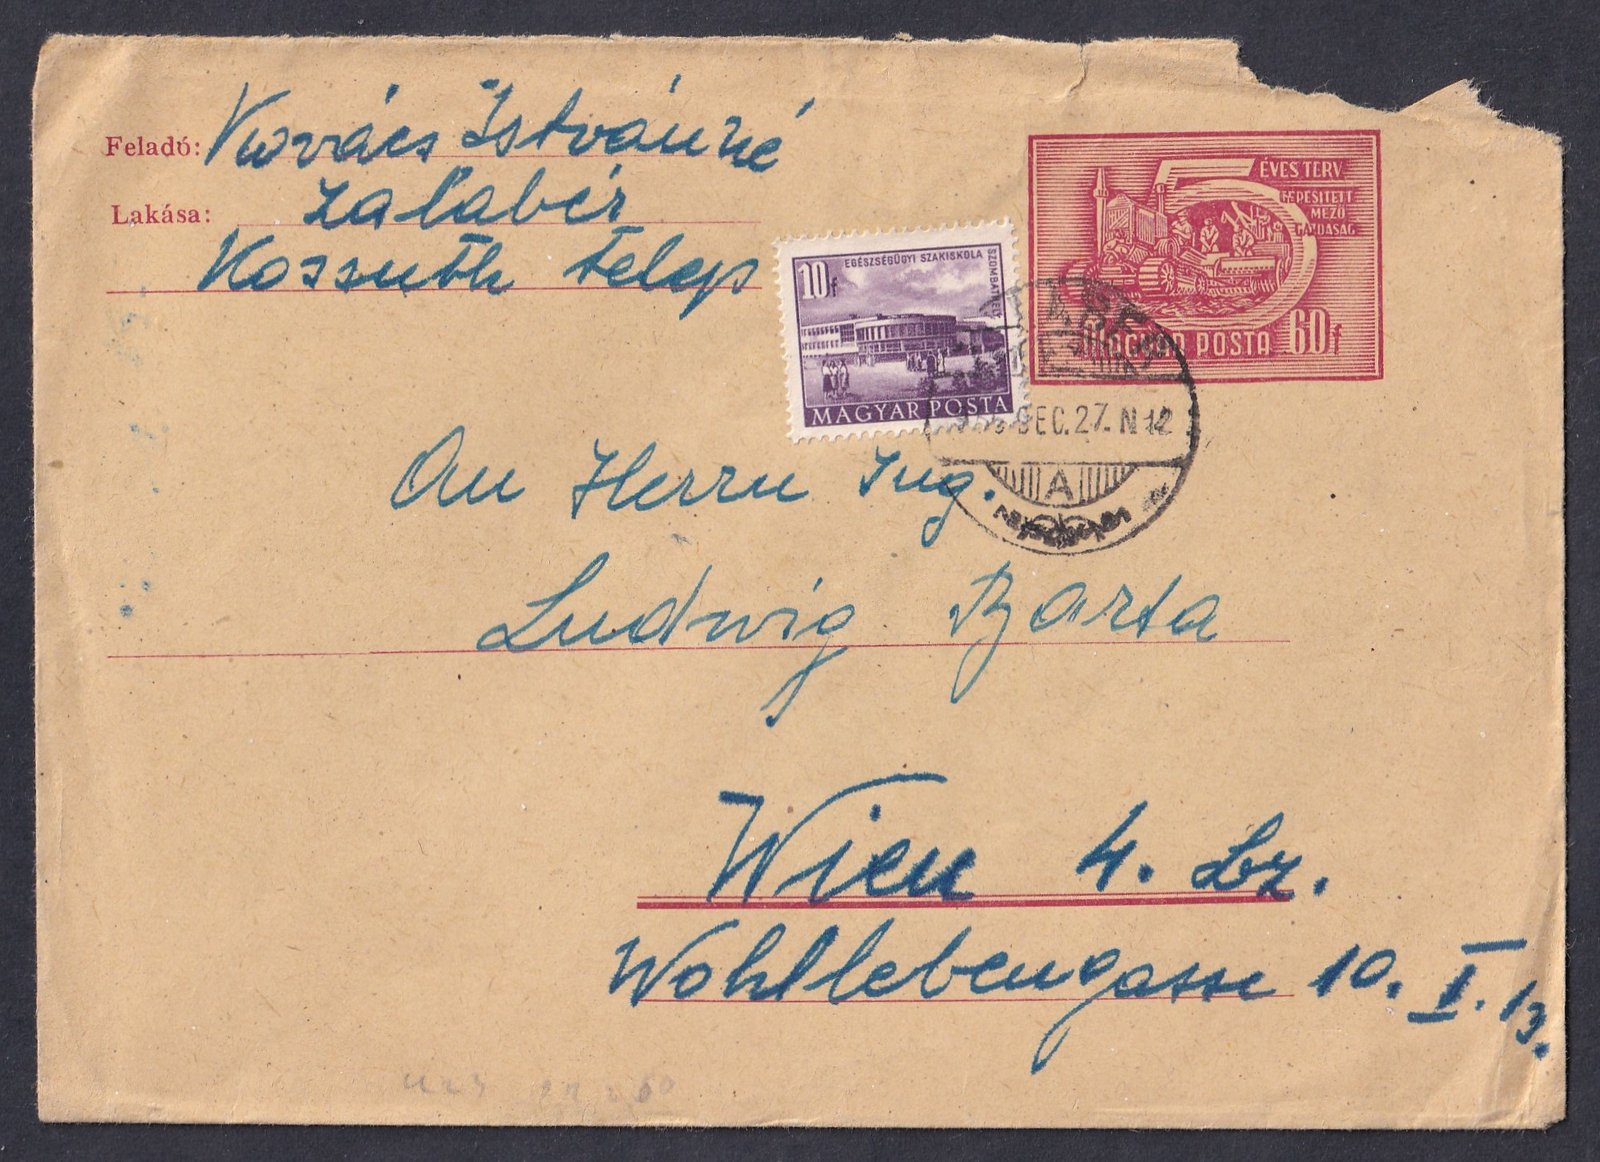 Feladó: Kovács Istvánné
Lakása: Zalabér
Kossuth telep
5 ÉVES TERV
GÉPESÍTETT
MEZŐ
GAZDASÁG
MAGYAR POSTA 60f
10f
EGÉSZSÉGÜGYI SZAKISKOLA
SZOMBATHELY
MAGYAR POSTA
DEC.27. N 12
A
An Herrn Ing.
Ludwig Barta
Wien 4. Bz.
Wohllebengasse 10. I. 13.